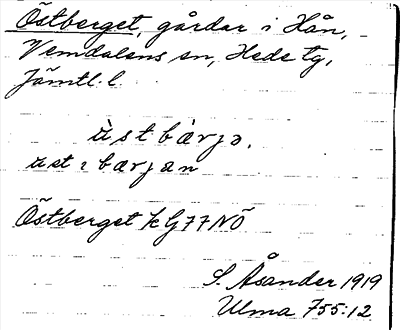 Östberget, gårdar i Hån,
Vemdalens sn, Hede tg,
Jämtl. l.
ùstbærjə.
ust ı bærjæn
Östberget k G 77 NÖ
S. Åsander 1919
Ulma 755:12